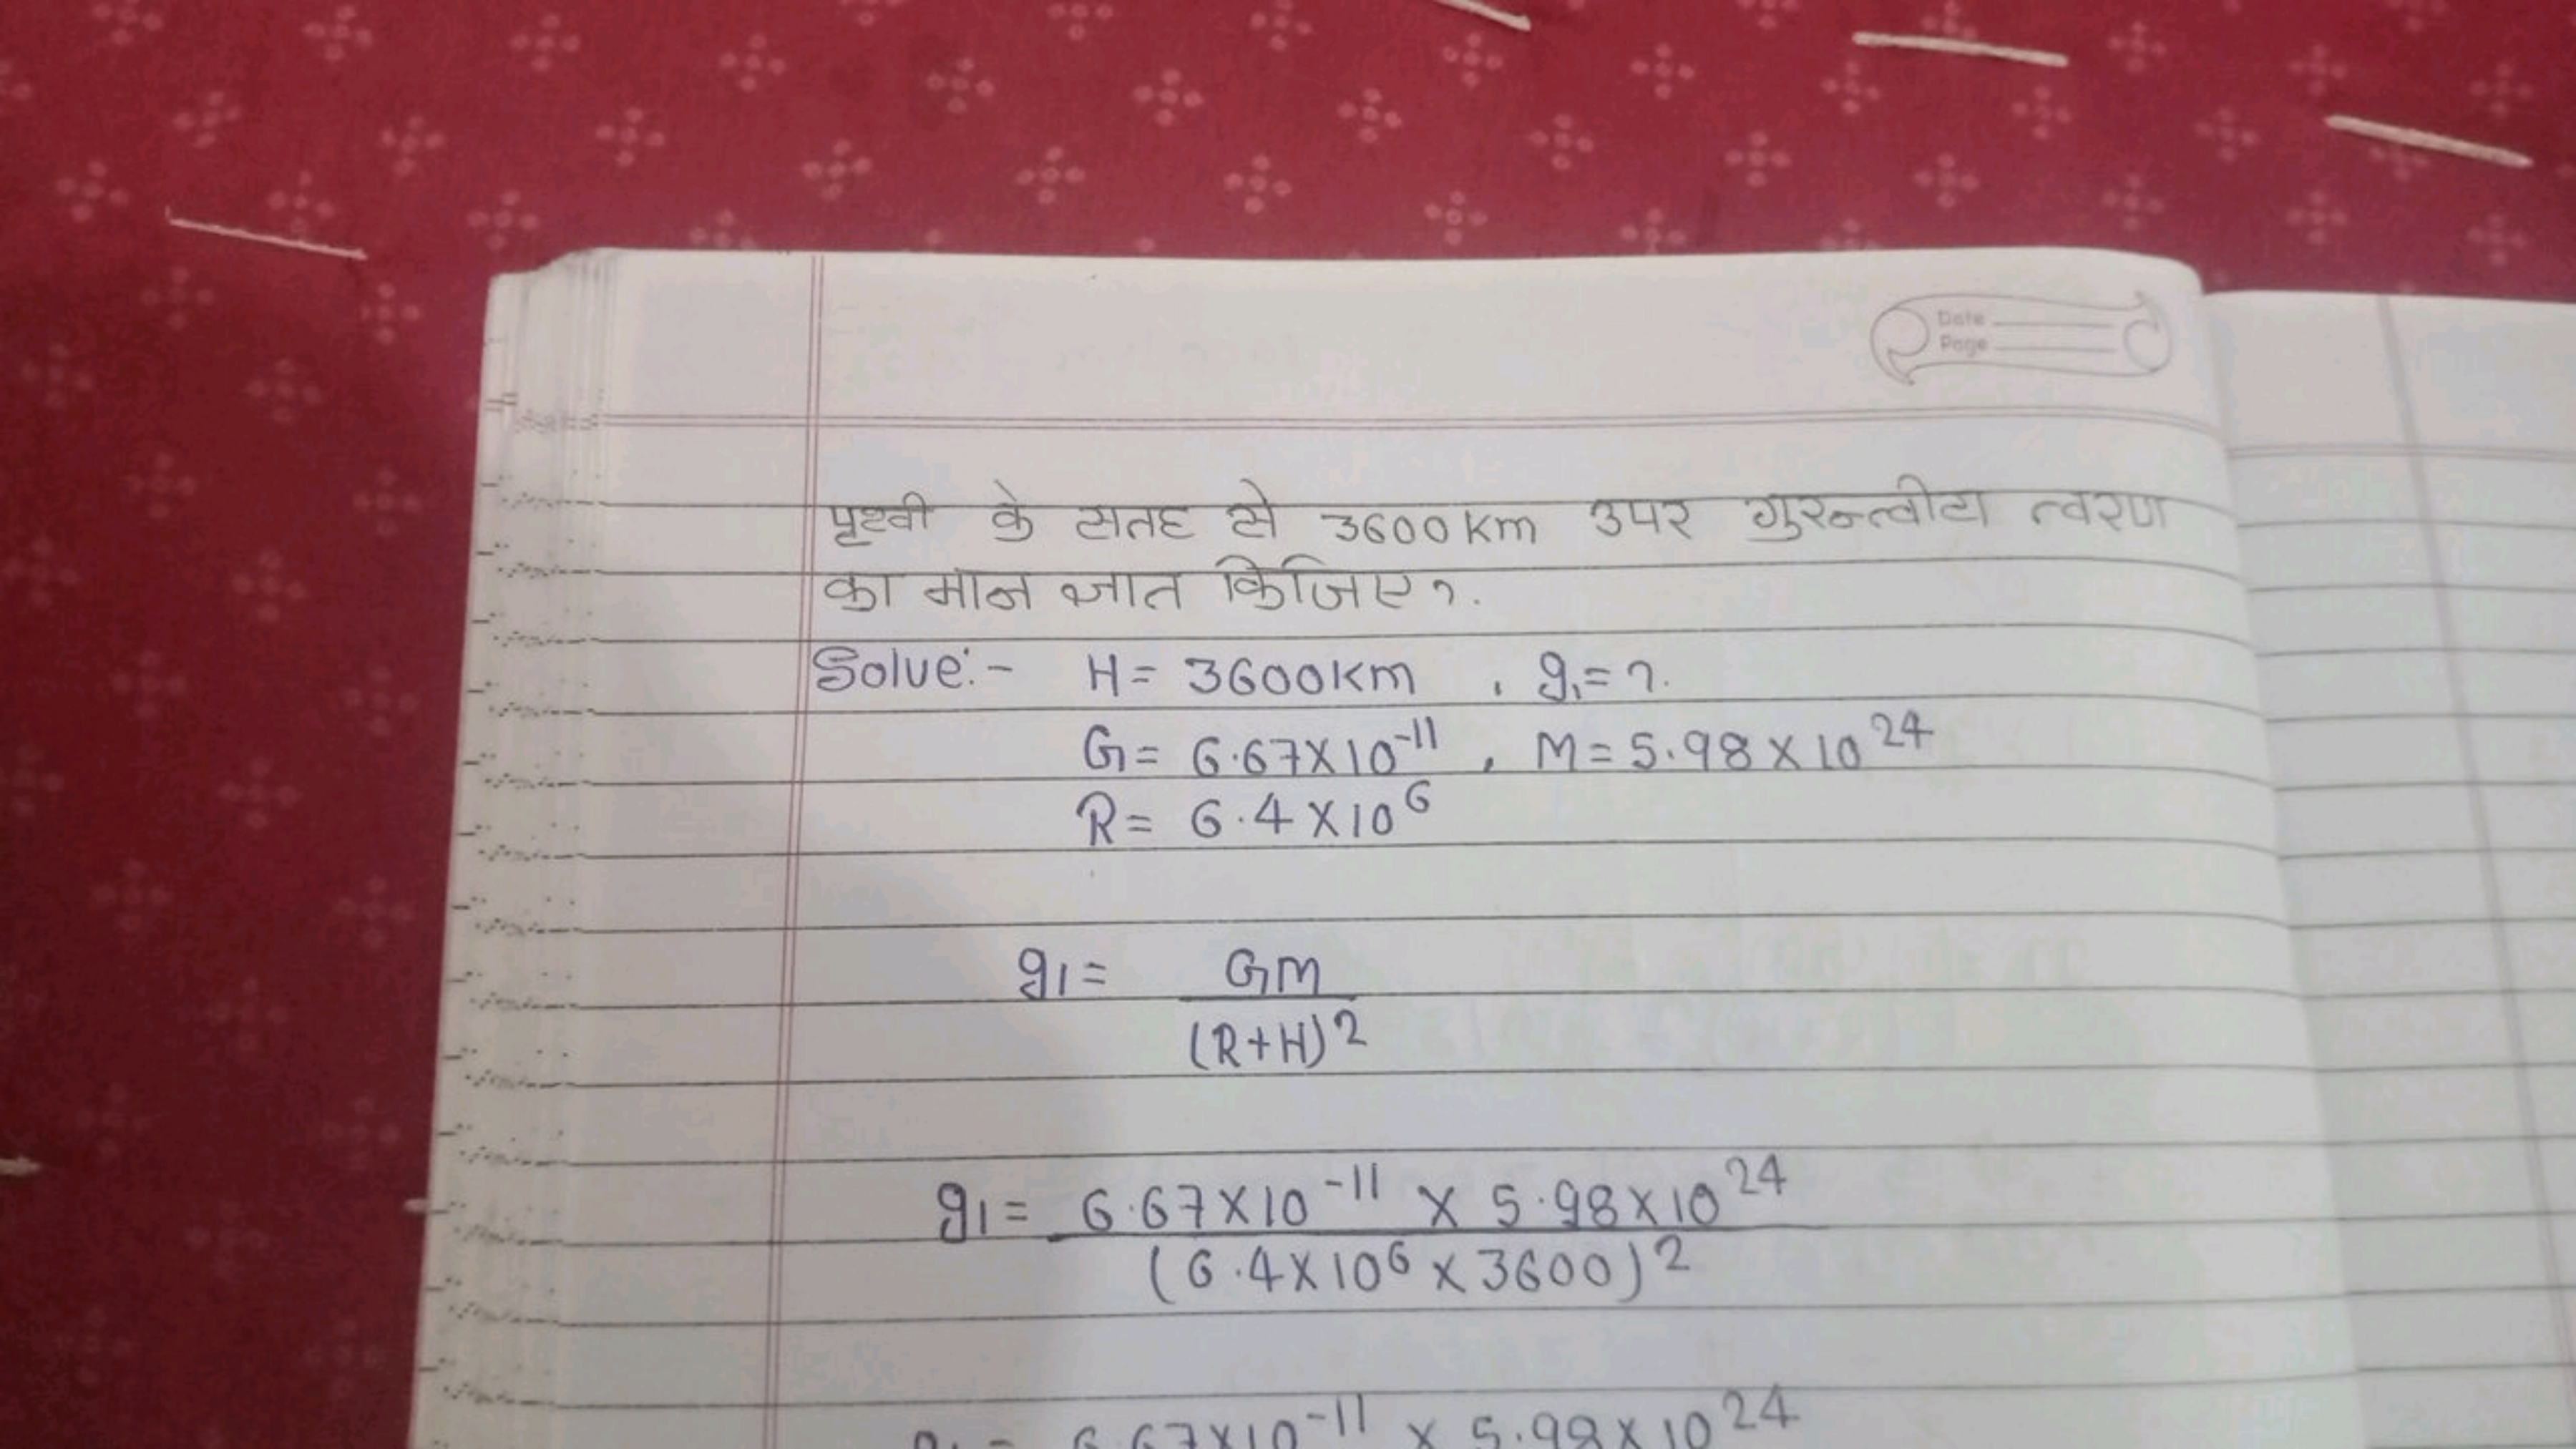 Date
Page
पृथ्वी के सतह से 3600km उपर गुरुत्वीय त्वरण
का मान ज्ञात किजिए?.
Solve:- H= 3600km , g₁= ?.
G= 6.67X10⁻¹¹ , M= 5.98X10²⁴
R= 6.4X10⁶
g1= GM
(R+H)²
g1= 6.67X10⁻¹¹ X 5.98X10²⁴
(6.4X10⁶X3600)²
6.67X10⁻¹¹ X 5.98X10²⁴